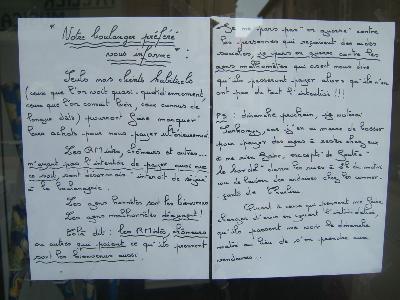 "Notre boulanger préféré
vous informe" :
Seuls mes clients habituels
(ceux que l'on voit quasi-quotidiennement,
ceux que l'on connaît bien, ceux connus de
longue date) pourront faire marquer
leurs achats pour nous payer ultérieurement.
Les RMistes, chômeurs et autres...
n'ayant pas l'intention de payer aussi que
ce soit, sont désormais interdit de séjour
à la boulangerie.
Les gens honnêtes sont les bienvenus
Les gens malhonnêtes dégagent !
Cela dit : les RMistes, chômeurs
ou autres qui paient ce qu'ils prennent
sont les bienvenus aussi.
Je ne pars pas "en guerre" contre
les personnes qui reçoivent des aides
sociales, je pars en guerre contre les
gens malhonnêtes qui osent nous dire
qu'ils passeront payer alors qu'ils n'en
ont pas du tout l'intention !!!
PS : dimanche prochain, je
Sarkozy, pas en mesure de laisser
pour payer des gens à rester chez eux
à ne rien faire, excepté de foutre
le bordel dans les rues à du matin
ou de laisser des chez les commer-
çants de
Quant à ceux qui pensent me faire
changer d'avis en usant l'intimidation,
qu'ils passent me voir le dimanche
matin au lieu de s'en prendre aux
vendeuses...